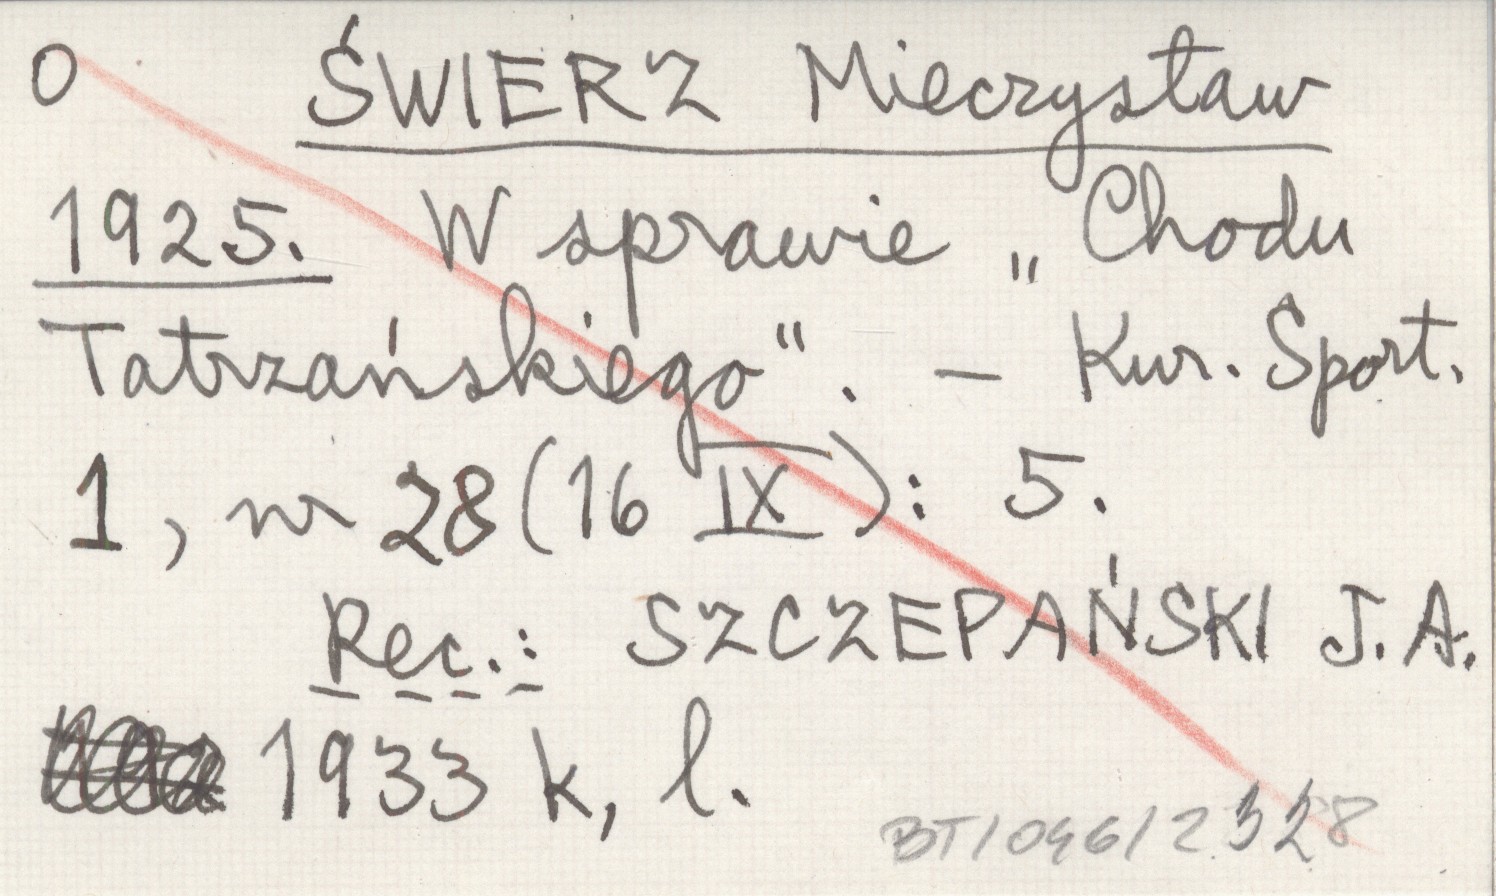 O ŚWIERZ Mieczysław
1925. W sprawie „Chodu
Tatrzańskiego". — Kur. Sport.
1, nr 28 (16 IX): 5.
Rec.: SZCZEPAŃSKI J. A.
1933 k, l.
BT/046/2328